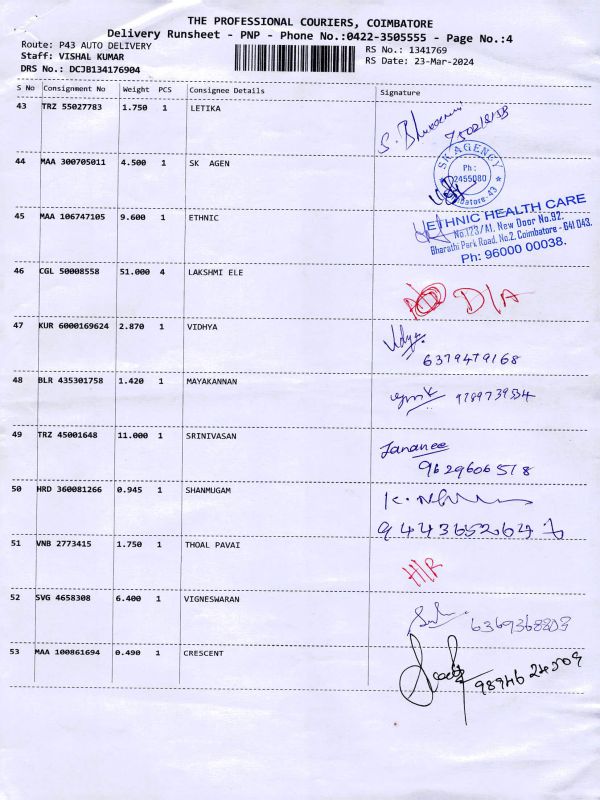 THE PROFESSIONAL COURIERS, COIMBATORE
Delivery Runsheet - PNP - Phone No.:0422-3505555 - Page No.:4
Route: P43 AUTO DELIVERY
Staff: VISHAL KUMAR
DRS No.: DCJB134176904
RS No.: 1341769
RS Date: 23-Mar-2024
S No Consignment No Weight PCS Consignee Details Signature
43 TRZ 55027783 1.750 1 LETIKA
44 MAA 300705011 4.500 1 SK AGEN
SK AGENCY
Ph :
2455080
45 MAA 106747105 9.600 1 ETHNIC
ETHNIC HEALTH CARE
No.123/A1, New Door No.92,
Bharathi Park Road, No.2, Coimbatore - 641 043.
Ph: 96000 00038.
46 CGL 50008558 51.000 4 LAKSHMI ELE
D/A
47 KUR 6000169624 2.870 1 VIDHYA
Vidya
6379479168
48 BLR 435301758 1.420 1 MAYAKANNAN
9789739534
49 TRZ 45001648 11.000 1 SRINIVASAN
Jananee
9629606518
50 HRD 360081266 0.945 1 SHANMUGAM
51 VNB 2773415 1.750 1 THOAL PAVAI
52 SVG 4658308 6.400 1 VIGNESWARAN
6369368803
53 MAA 100861694 0.490 1 CRESCENT
9894624509